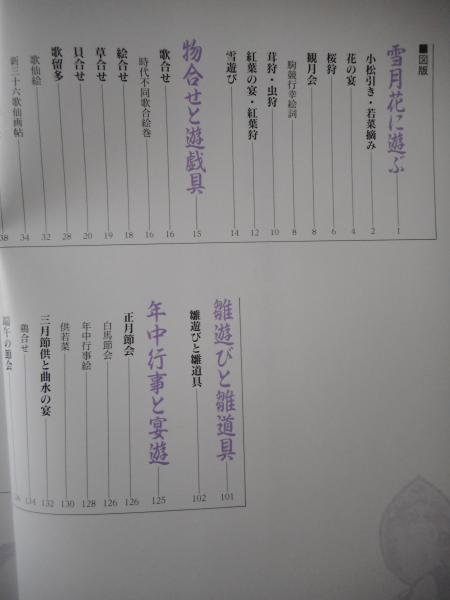 ■図版
雪月花に遊ぶ 1
小松引き・若菜摘み 2
花の宴 4
桜狩 6
観月会 8
駒競行幸絵詞 8
茸狩・虫狩 10
紅葉の宴・紅葉狩 12
雪遊び 14
物合せと遊戯具 15
歌合せ 16
時代不同歌合絵巻 16
絵合せ 18
草合せ 19
貝合せ 20
歌留多 28
歌仙絵 32
新三十六歌仙画帖 34
38
雛遊びと雛道具 101
雛遊びと雛道具 102
年中行事と宴遊 125
正月節会 126
白馬節会 126
年中行事絵 128
供若菜 130
三月節供と曲水の宴 132
鶏合せ 134
端午の節会